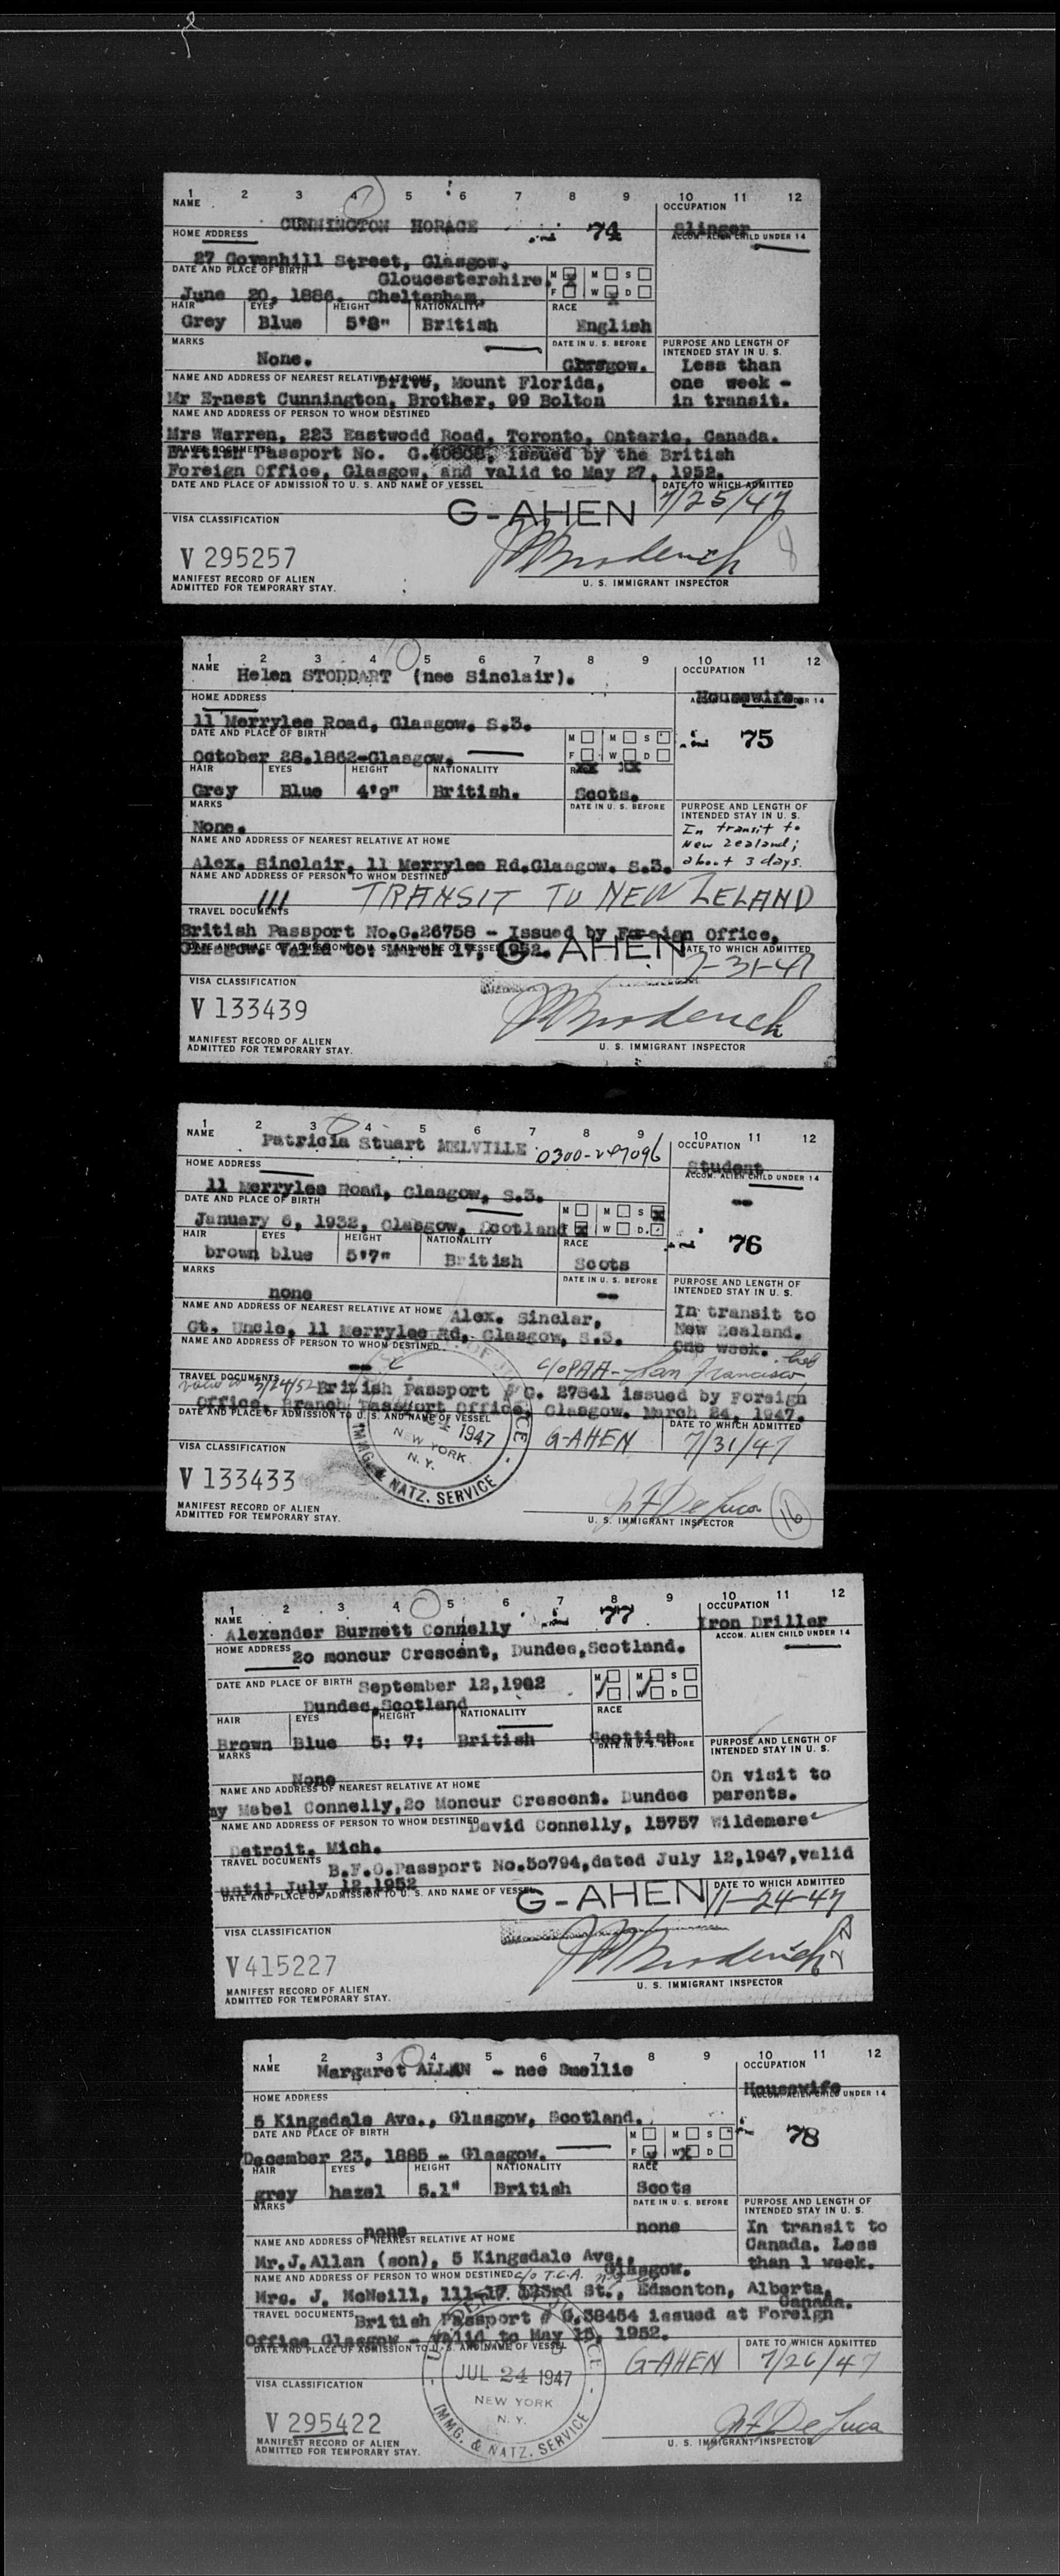 1 2 3 4 5 6 7 8 9 10 11 12
NAME OCCUPATION
CUNNINGTON HORACE 74 Slinger
HOME ADDRESS ACCOM. ALIEN CHILD UNDER 14
27 Govanhill Street, Glasgow.
DATE AND PLACE OF BIRTH Gloucestershire. M M S
June 20, 1886. Cheltenham, F W D
HAIR EYES HEIGHT NATIONALITY RACE
Grey Blue 5'8" British English
MARKS DATE IN U. S. BEFORE PURPOSE AND LENGTH OF
INTENDED STAY IN U. S.
None. Glasgow. Less than
NAME AND ADDRESS OF NEAREST RELATIVE AT HOME Drive, Mount Florida, one week -
Mr Ernest Cunnington, Brother, 99 Bolton in transit.
NAME AND ADDRESS OF PERSON TO WHOM DESTINED
Mrs Warren, 223 Eastwodd Road, Toronto, Ontario, Canada.
TRAVEL DOCUMENTS
British Passport No. G. issued by the British
Foreign Office, Glasgow, and valid to May 27, 1952.
DATE AND PLACE OF ADMISSION TO U. S. AND NAME OF VESSEL DATE TO WHICH ADMITTED
G-AHEN 7/25/47
VISA CLASSIFICATION
V 295257
MANIFEST RECORD OF ALIEN
ADMITTED FOR TEMPORARY STAY. U. S. IMMIGRANT INSPECTOR
1 2 3 4 5 6 7 8 9 10 11 12
NAME Helen STODDART (nee Sinclair). OCCUPATION
HOME ADDRESS Housewife.
11 Merrylee Road, Glasgow. S.3.
DATE AND PLACE OF BIRTH M M S 75
October 28.1862-Glasgow. F W D
HAIR EYES HEIGHT NATIONALITY RACE
Grey Blue 4'9" British. Scots.
MARKS DATE IN U. S. BEFORE PURPOSE AND LENGTH OF
INTENDED STAY IN U. S.
None. In transit to
NAME AND ADDRESS OF NEAREST RELATIVE AT HOME New Zealand;
Alex. Sinclair, 11 Merrylee Rd.Glasgow. S.3. about 3 days.
NAME AND ADDRESS OF PERSON TO WHOM DESTINED
III TRANSIT TO NEW ZELAND
TRAVEL DOCUMENTS
British Passport No.G.26758 - Issued by Foreign Office,
Glasgow. Valid to: March 17, 1952.
DATE AND PLACE OF ADMISSION TO U. S. AND NAME OF VESSEL G-AHEN DATE TO WHICH ADMITTED
7-31-47
VISA CLASSIFICATION
V 133439
MANIFEST RECORD OF ALIEN
ADMITTED FOR TEMPORARY STAY. U. S. IMMIGRANT INSPECTOR
1 2 3 4 5 6 7 8 9 10 11 12
NAME Patricia Stuart MELVILLE OCCUPATION
HOME ADDRESS Student
ACCOM. ALIEN CHILD UNDER 14
11 Merrylee Road, Glasgow, S.3. --
DATE AND PLACE OF BIRTH M M S
January 6, 1932, Glasgow, Scotland F W D
HAIR EYES HEIGHT NATIONALITY RACE 76
brown blue 5'7" British Scots
MARKS DATE IN U. S. BEFORE PURPOSE AND LENGTH OF
INTENDED STAY IN U. S.
none --
NAME AND ADDRESS OF NEAREST RELATIVE AT HOME Alex. Sinclar, In transit to
Gt. Uncle, 11 Merrylee Rd, Glasgow, S.3. New Zealand.
NAME AND ADDRESS OF PERSON TO WHOM DESTINED One week.
-- C/O PAA - San Francisco,
TRAVEL DOCUMENTS British Passport # G. 27841 issued by Foreign
Office, Branch Passport Office, Glasgow. March 24, 1947.
DATE AND PLACE OF ADMISSION TO U. S. AND NAME OF VESSEL DATE TO WHICH ADMITTED
1947 G-AHEN 7/31/47
NEW YORK
N. Y.
VISA CLASSIFICATION
V 133433
IMMG. & NATZ. SERVICE
MANIFEST RECORD OF ALIEN
ADMITTED FOR TEMPORARY STAY. U. S. IMMIGRANT INSPECTOR 16
1 2 3 4 5 6 7 8 9 10 11 12
NAME 77 OCCUPATION
Alexander Burnett Connelly Iron Driller
HOME ADDRESS 20 moncur Crescent, Dundee,Scotland. ACCOM. ALIEN CHILD UNDER 14
DATE AND PLACE OF BIRTH September 12,1902 M M S
Dundee,Scotland W D
HAIR EYES HEIGHT NATIONALITY RACE
Brown Blue 5: 7: British Scottish
MARKS DATE IN U. S. BEFORE PURPOSE AND LENGTH OF
INTENDED STAY IN U. S.
None On visit to
NAME AND ADDRESS OF NEAREST RELATIVE AT HOME parents.
Mabel Connelly,20 Moncur Crescent. Dundee
NAME AND ADDRESS OF PERSON TO WHOM DESTINED David Connelly, 15757 Wildemere
Detroit, Mich.
TRAVEL DOCUMENTS B.F.O.Passport No.50794,dated July 12,1947,valid
until July 12,1952
DATE AND PLACE OF ADMISSION TO U. S. AND NAME OF VESSEL G-AHEN DATE TO WHICH ADMITTED
11-24-47
VISA CLASSIFICATION
V415227
MANIFEST RECORD OF ALIEN
ADMITTED FOR TEMPORARY STAY. U. S. IMMIGRANT INSPECTOR
1 2 3 4 5 6 7 8 9 10 11 12
NAME Margaret ALLAN - nee Smellie OCCUPATION
HOME ADDRESS Housewife
ACCOM. ALIEN CHILD UNDER 14
5 Kingsdale Ave., Glasgow, Scotland.
DATE AND PLACE OF BIRTH M M S 78
December 23, 1885 - Glasgow. F W D
HAIR EYES HEIGHT NATIONALITY RACE
grey hazel 5.1" British Scots
MARKS DATE IN U. S. BEFORE PURPOSE AND LENGTH OF
INTENDED STAY IN U. S.
none none In transit to
NAME AND ADDRESS OF NEAREST RELATIVE AT HOME Canada. Less
Mr.J.Allan (son), 5 Kingsdale Ave., than 1 week.
Glasgow.
NAME AND ADDRESS OF PERSON TO WHOM DESTINED c/o T.C.A.
Mrs. J. McNeill, 111-17 123rd St., Edmonton, Alberta,
Canada.
TRAVEL DOCUMENTS British Passport # G.38454 issued at Foreign
Office Glasgow - valid to May 15, 1952.
DATE AND PLACE OF ADMISSION TO U. S. AND NAME OF VESSEL DATE TO WHICH ADMITTED
JUL 24 1947 G-AHEN 7/26/47
NEW YORK
N. Y.
VISA CLASSIFICATION
V 295422
IMMG. & NATZ. SERVICE
MANIFEST RECORD OF ALIEN
ADMITTED FOR TEMPORARY STAY. U. S. IMMIGRANT INSPECTOR